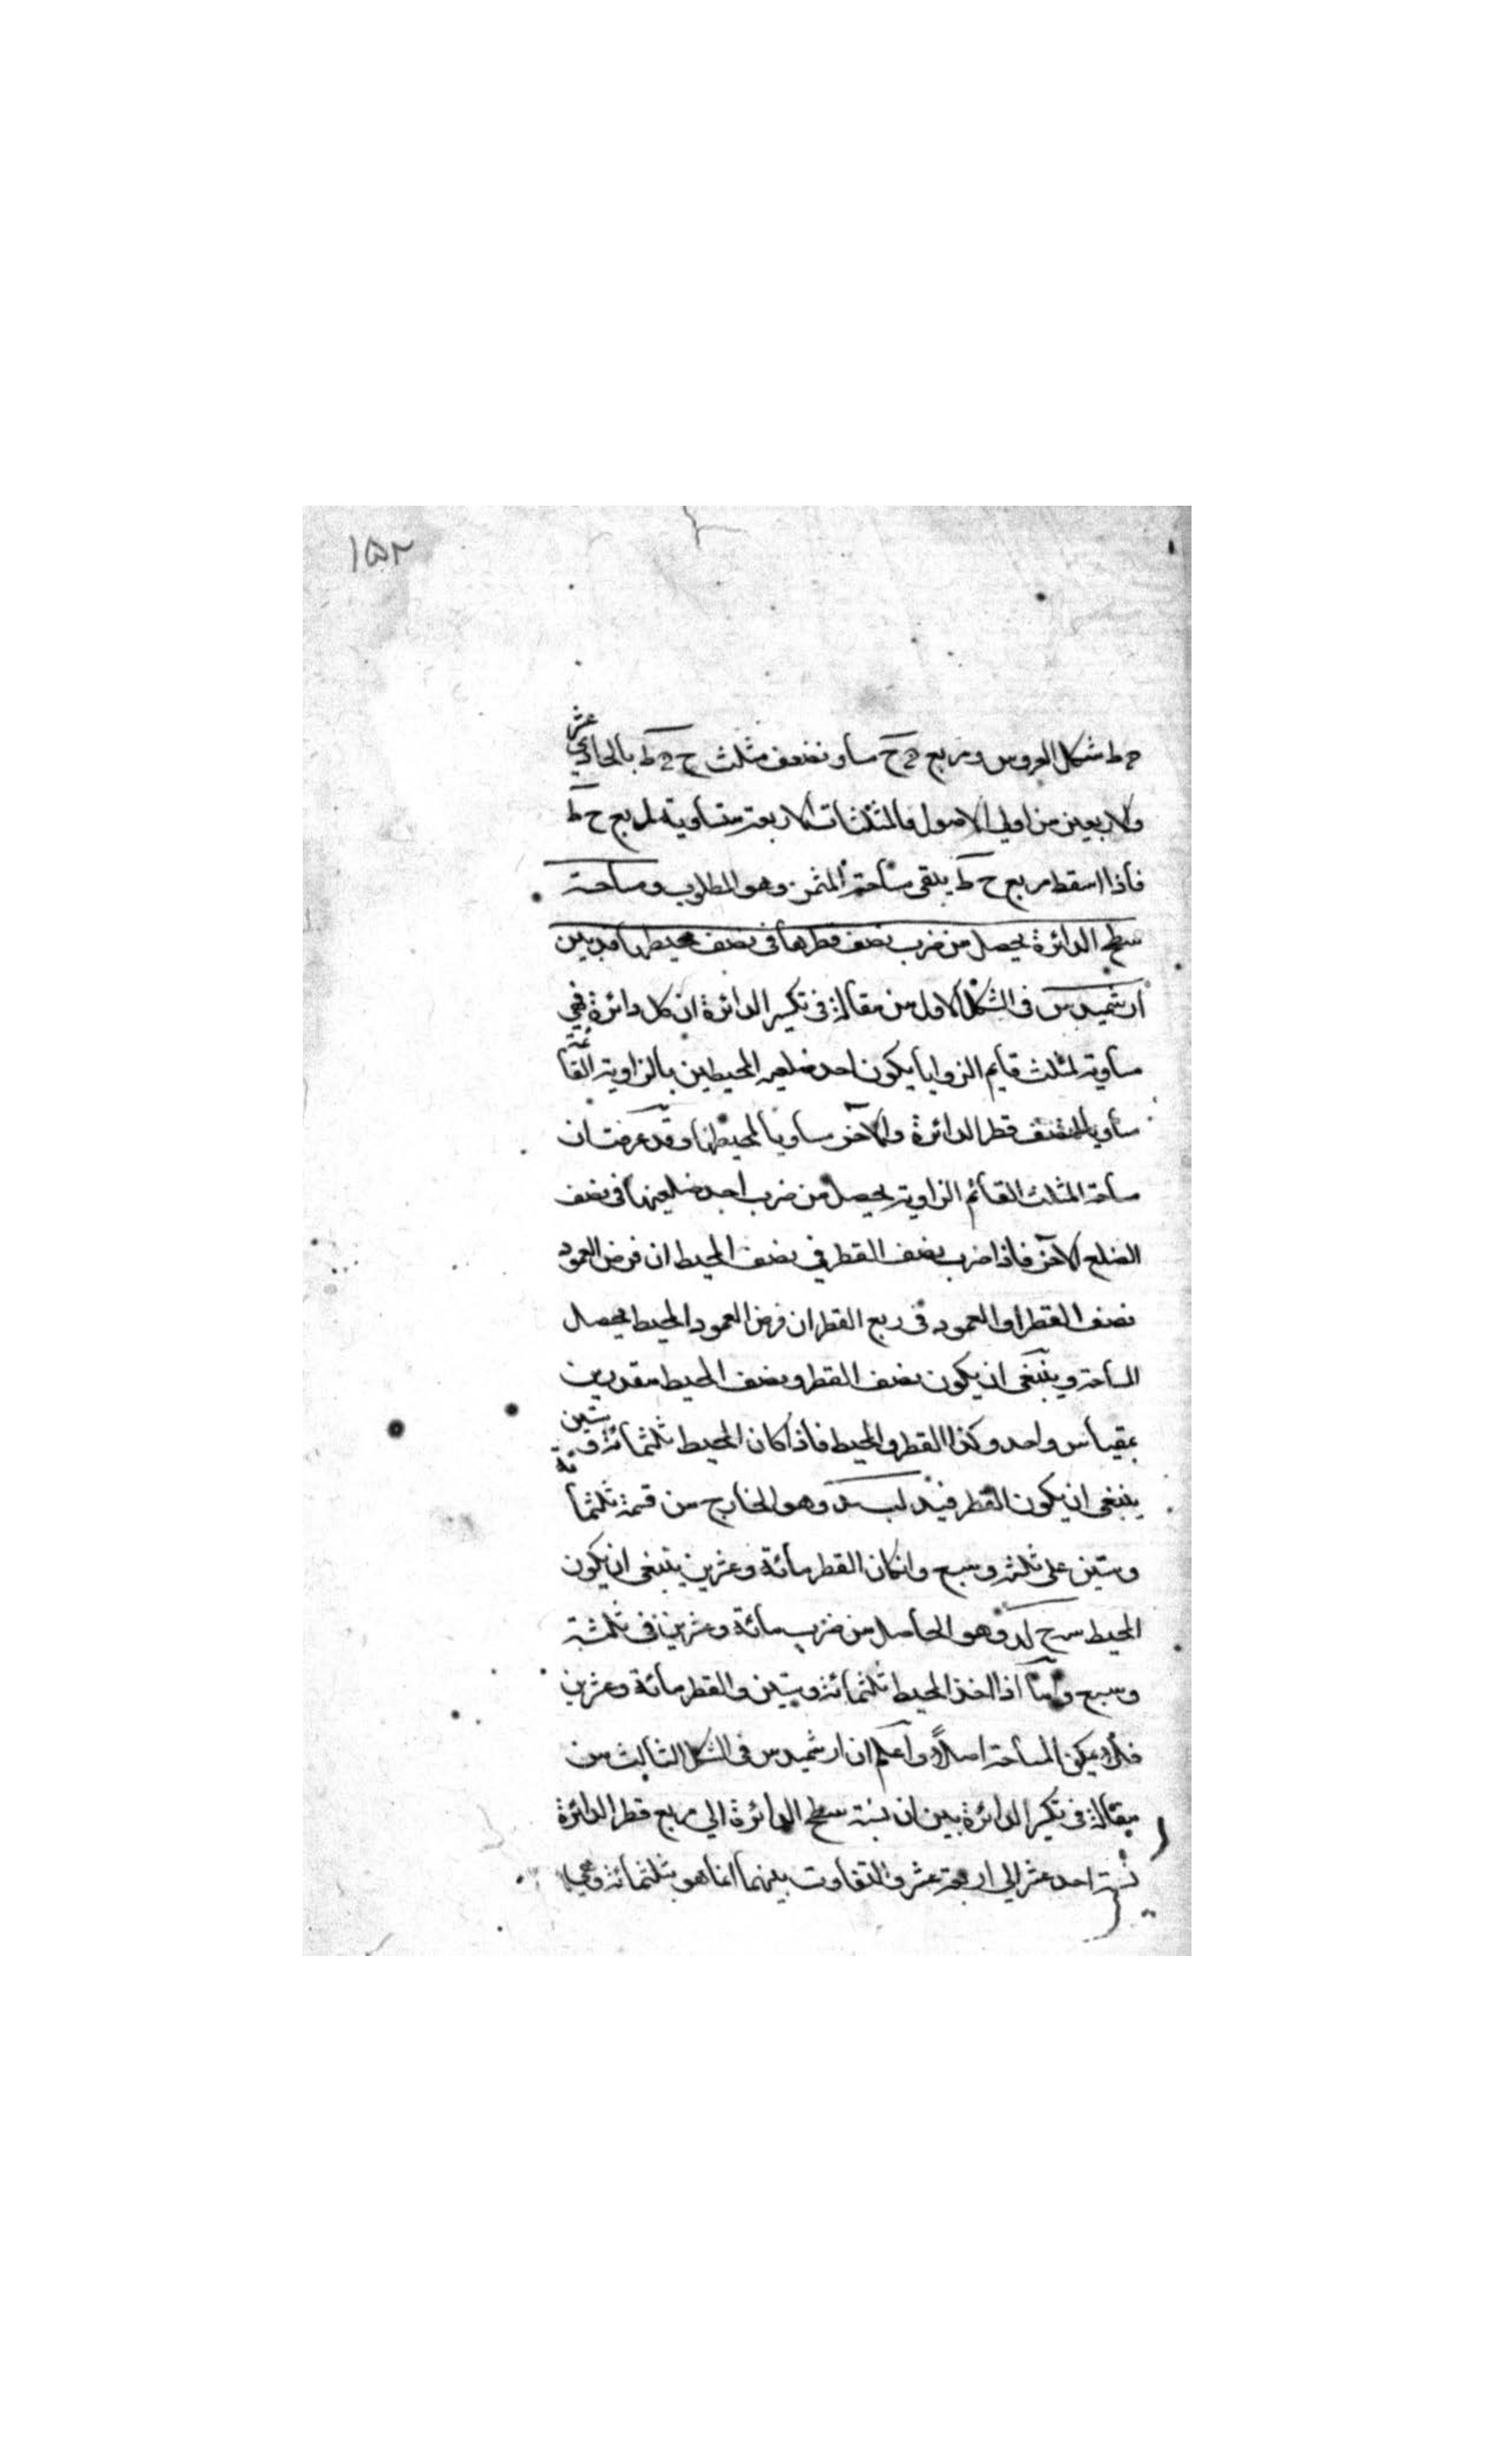 ١٥٢
ح ط شكل العروس ومربع ح ح مساو لضعف مثلث ح ح ط بالحادي عشر
والاربعين من اولي الاصول فالمثلثات الاربعة متساوية لمربع ح ط
فاذا اسقط مربع ح ط يبقى مساحة المثمن وهو المطلوب ومساحة
سطح الدائرة يحصل من ضرب نصف قطرها في نصف محيطها قد بين
ارشميدس في الشكل الاول من مقالة في تكسير الدائرة ان كل دائرة فهي
مساوية لمثلث قايم الزوايا يكون احد ضلعيه المحيطين بالزاوية القائمة
مساويا لنصف قطر الدائرة والآخر مساويا لمحيطها وقد عرفت ان
مساحة المثلث القائم الزاوية يحصل من ضرب احد ضلعيها في نصف
الضلع الآخر فاذا ضرب نصف القطر في نصف المحيط ان فرض العمود
نصف القطر او العمود في ربع القطر ان فرض العمود المحيط يحصل
المساحة وينبغي ان يكون نصف القطر ونصف المحيط مقدرين
بمقياس واحد وكذا القطر والمحيط فاذا كان المحيط ثلثمائة وستين
ينبغي ان يكون القطر قيد لب مد وهو الخارج من قسمة ثلثمائة
وستين على ثلثة وسبع وان كان القطر مائة وعشرين ينبغي ان يكون
المحيط سرح لد وهو الحاصل من ضرب مائة وعشرين في ثلثة
وسبع واما اذا اخذ المحيط ثلثمائة وستين والقطر مائة وعشرين
فلا يمكن المساحة اصلاً واعلم ان ارشميدس في الشكل الثالث من
مقالة في تكسير الدائرة بين ان نسبة سطح الدائرة الي مربع قطر الدائرة
نسبة احد عشر الي اربعة عشر والتفاوت بينهما انما هو بثلثمائة